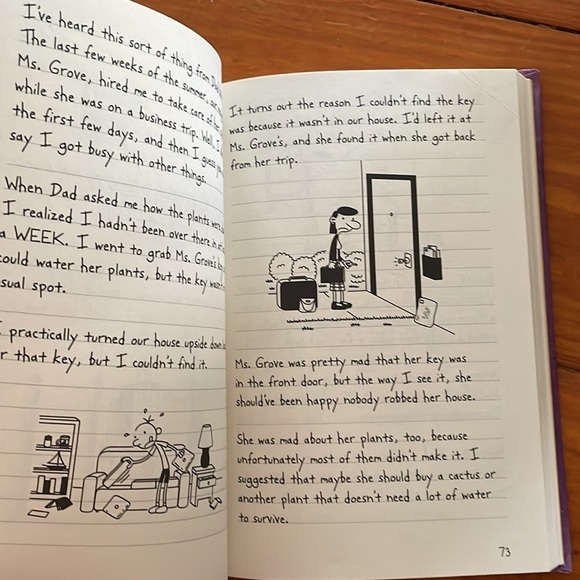 I've heard this sort of thing from
The last few weeks of the summer,
Ms. Grove, hired me to take care of
while she was on a business trip. Well, I
the first few days, and then I guess
say I got busy with other things.
When Dad asked me how the plants were
I realized I hadn't been over there in
a WEEK. I went to grab Ms. Grove's
could water her plants, but the key
usual spot.
I practically turned our house upside down
for that key, but I couldn't find it.
It turns out the reason I couldn't find the key
was because it wasn't in our house. I'd left it at
Ms. Grove's, and she found it when she got back
from her trip.
Ms. Grove was pretty mad that her key was
in the front door, but the way I see it, she
should've been happy nobody robbed her house.
She was mad about her plants, too, because
unfortunately most of them didn't make it. I
suggested that maybe she should buy a cactus or
another plant that doesn't need a lot of water
to survive.
73